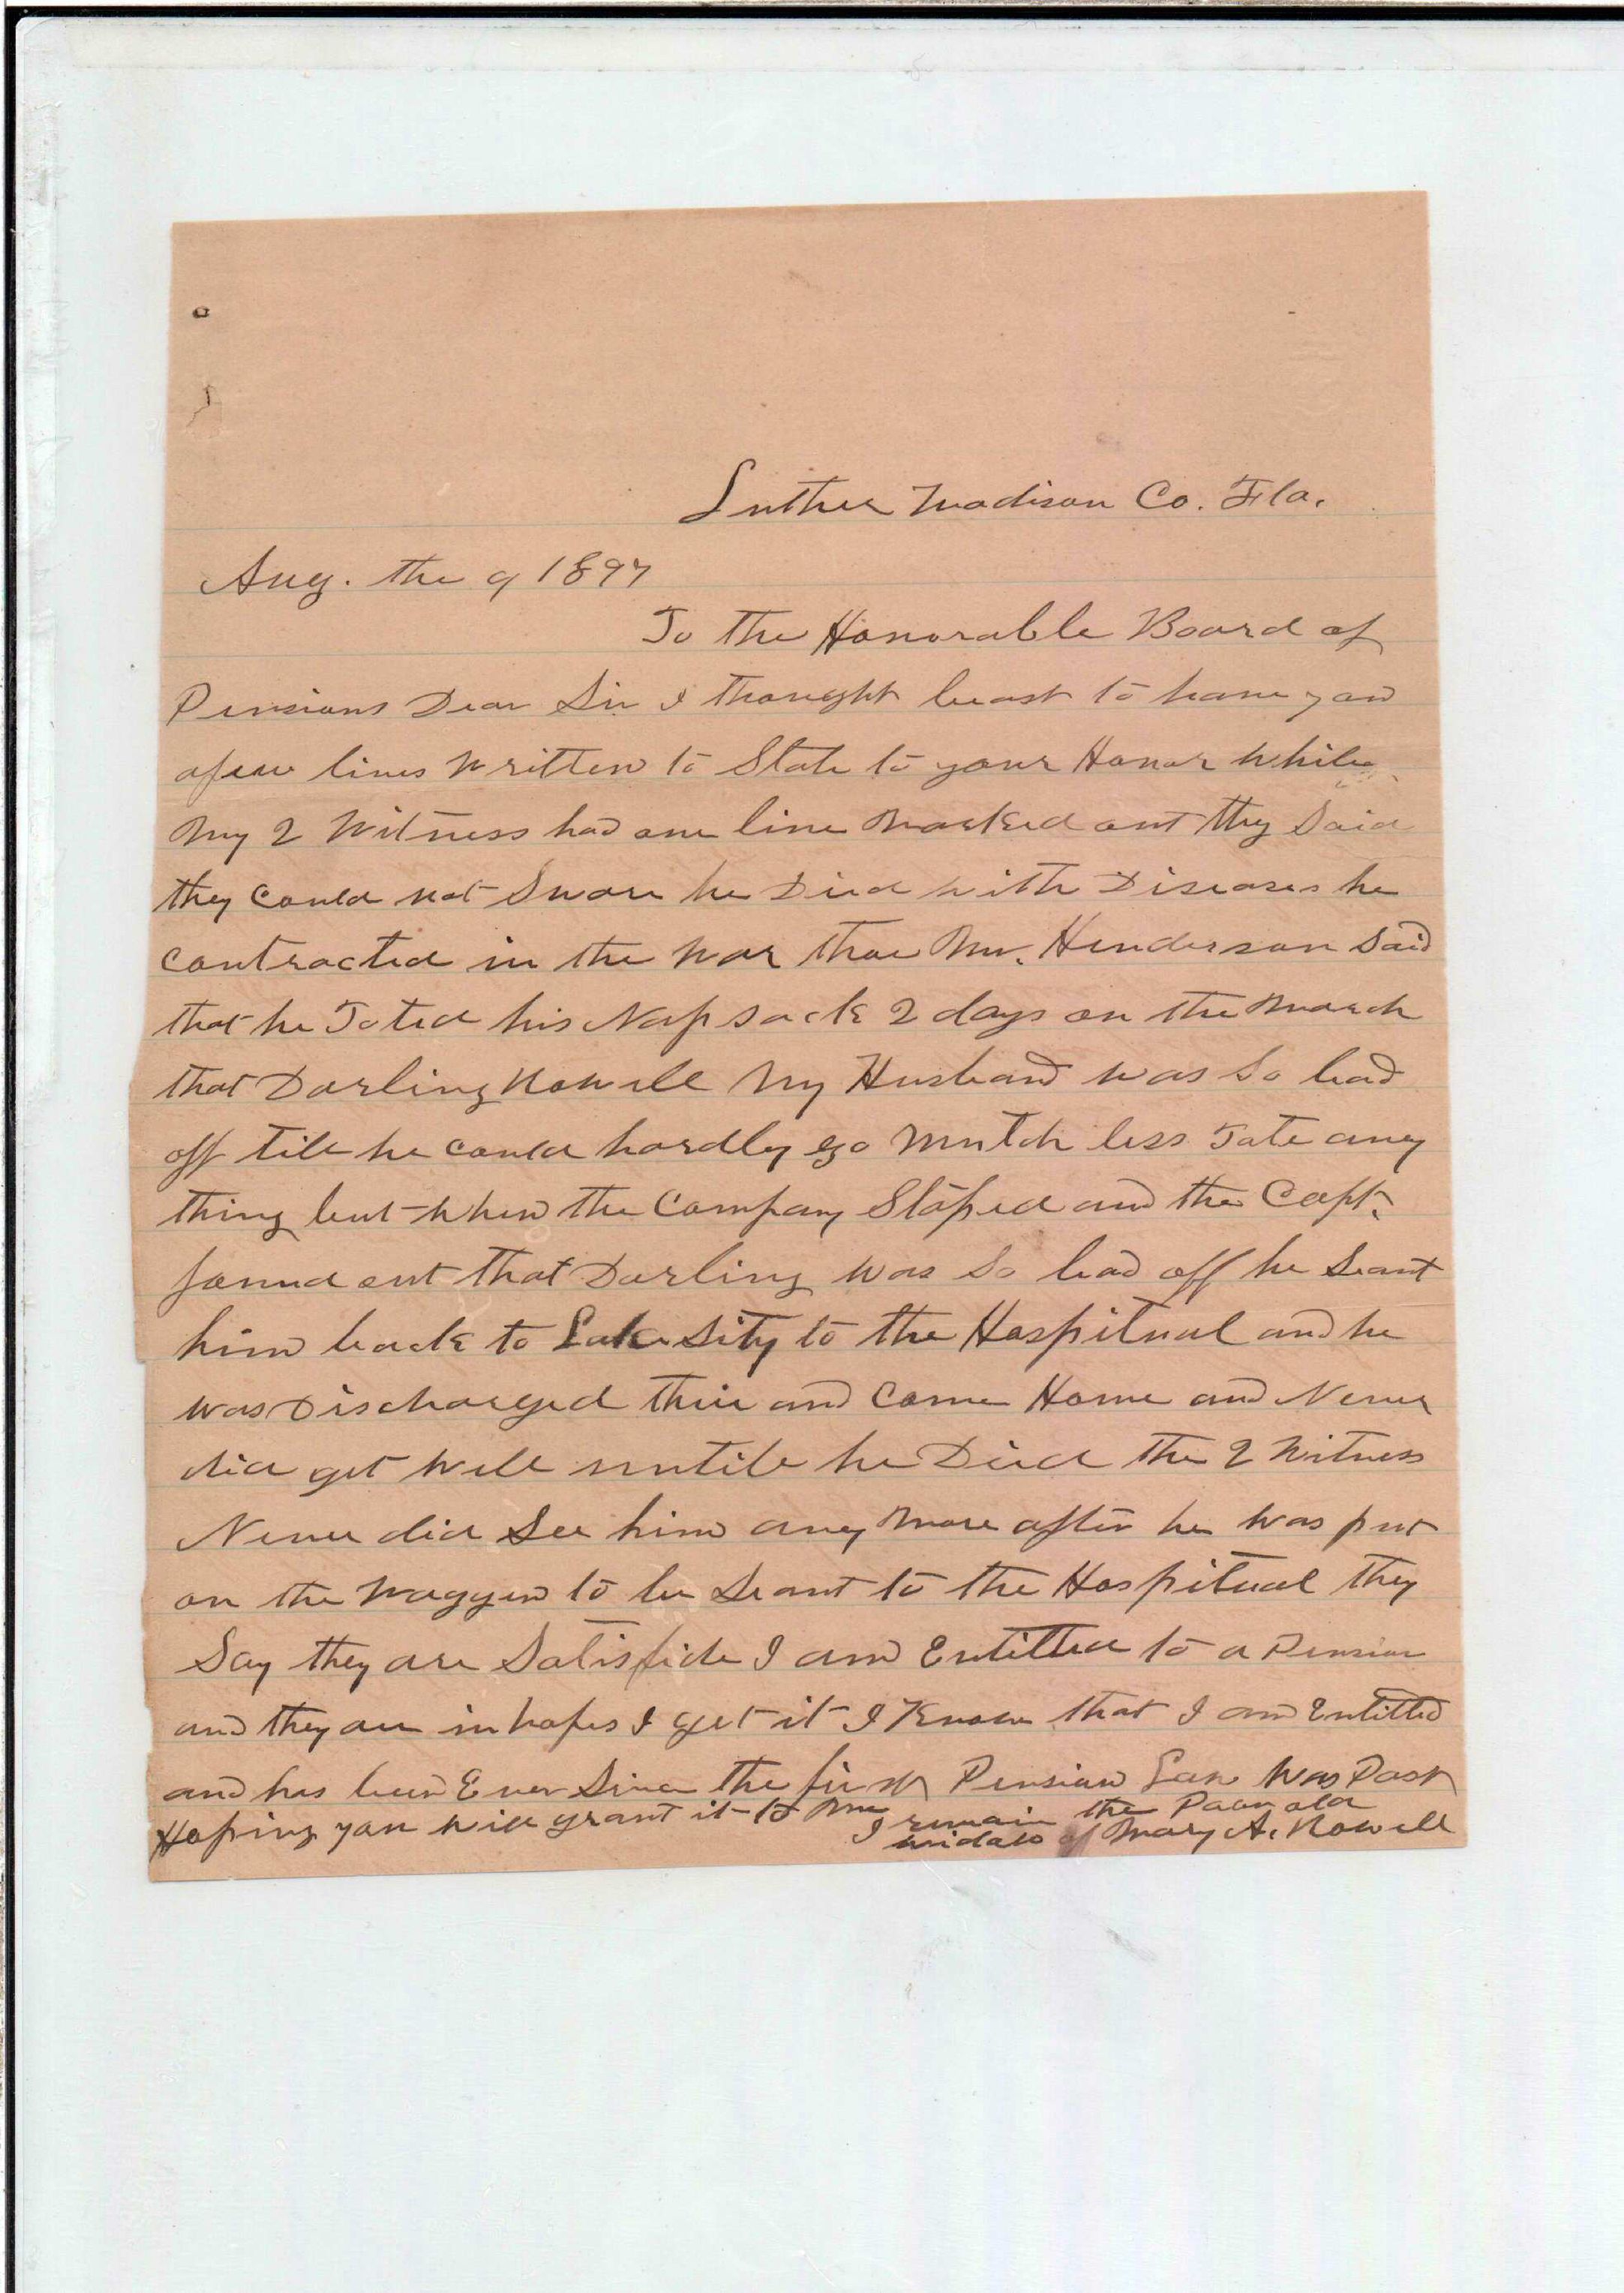 Luther Madison Co. Fla.
Aug. the 9 1897
To the Honorable Board of
Pensions Dear Sir I thought beast to have you
afeau lines written to State to your Honor while
My 2 Witness had one line Marked out they Said
they could not Swore he Died with Diseases he
contracted in the War thoe Mr. Henderson Said
that he Toted his Napsack 2 days on the March
that Darling Nowell My Husband was So bad
off till he could hardly go Mutch less Tote any
thing but when the Company Stoped and the Capt.
found out that Darling was So bad off he Seant
him back to Lake Sity to the Hospitual and he
was Discharged thire and Come Home and Never
did get Well untill he Died the 2 Witness
Never did See him any More after he was put
on the Waggen to be Seant to the Hospitual they
Say they are Satisfide I am Entitled to a Pension
and they are in hopes I get it I Know that I am Entitled
and has been Ever Since the first Pension Law Was Past
Hoping you will grant it to Me
I remain the Poor old
widaw of Mary A. Nowell